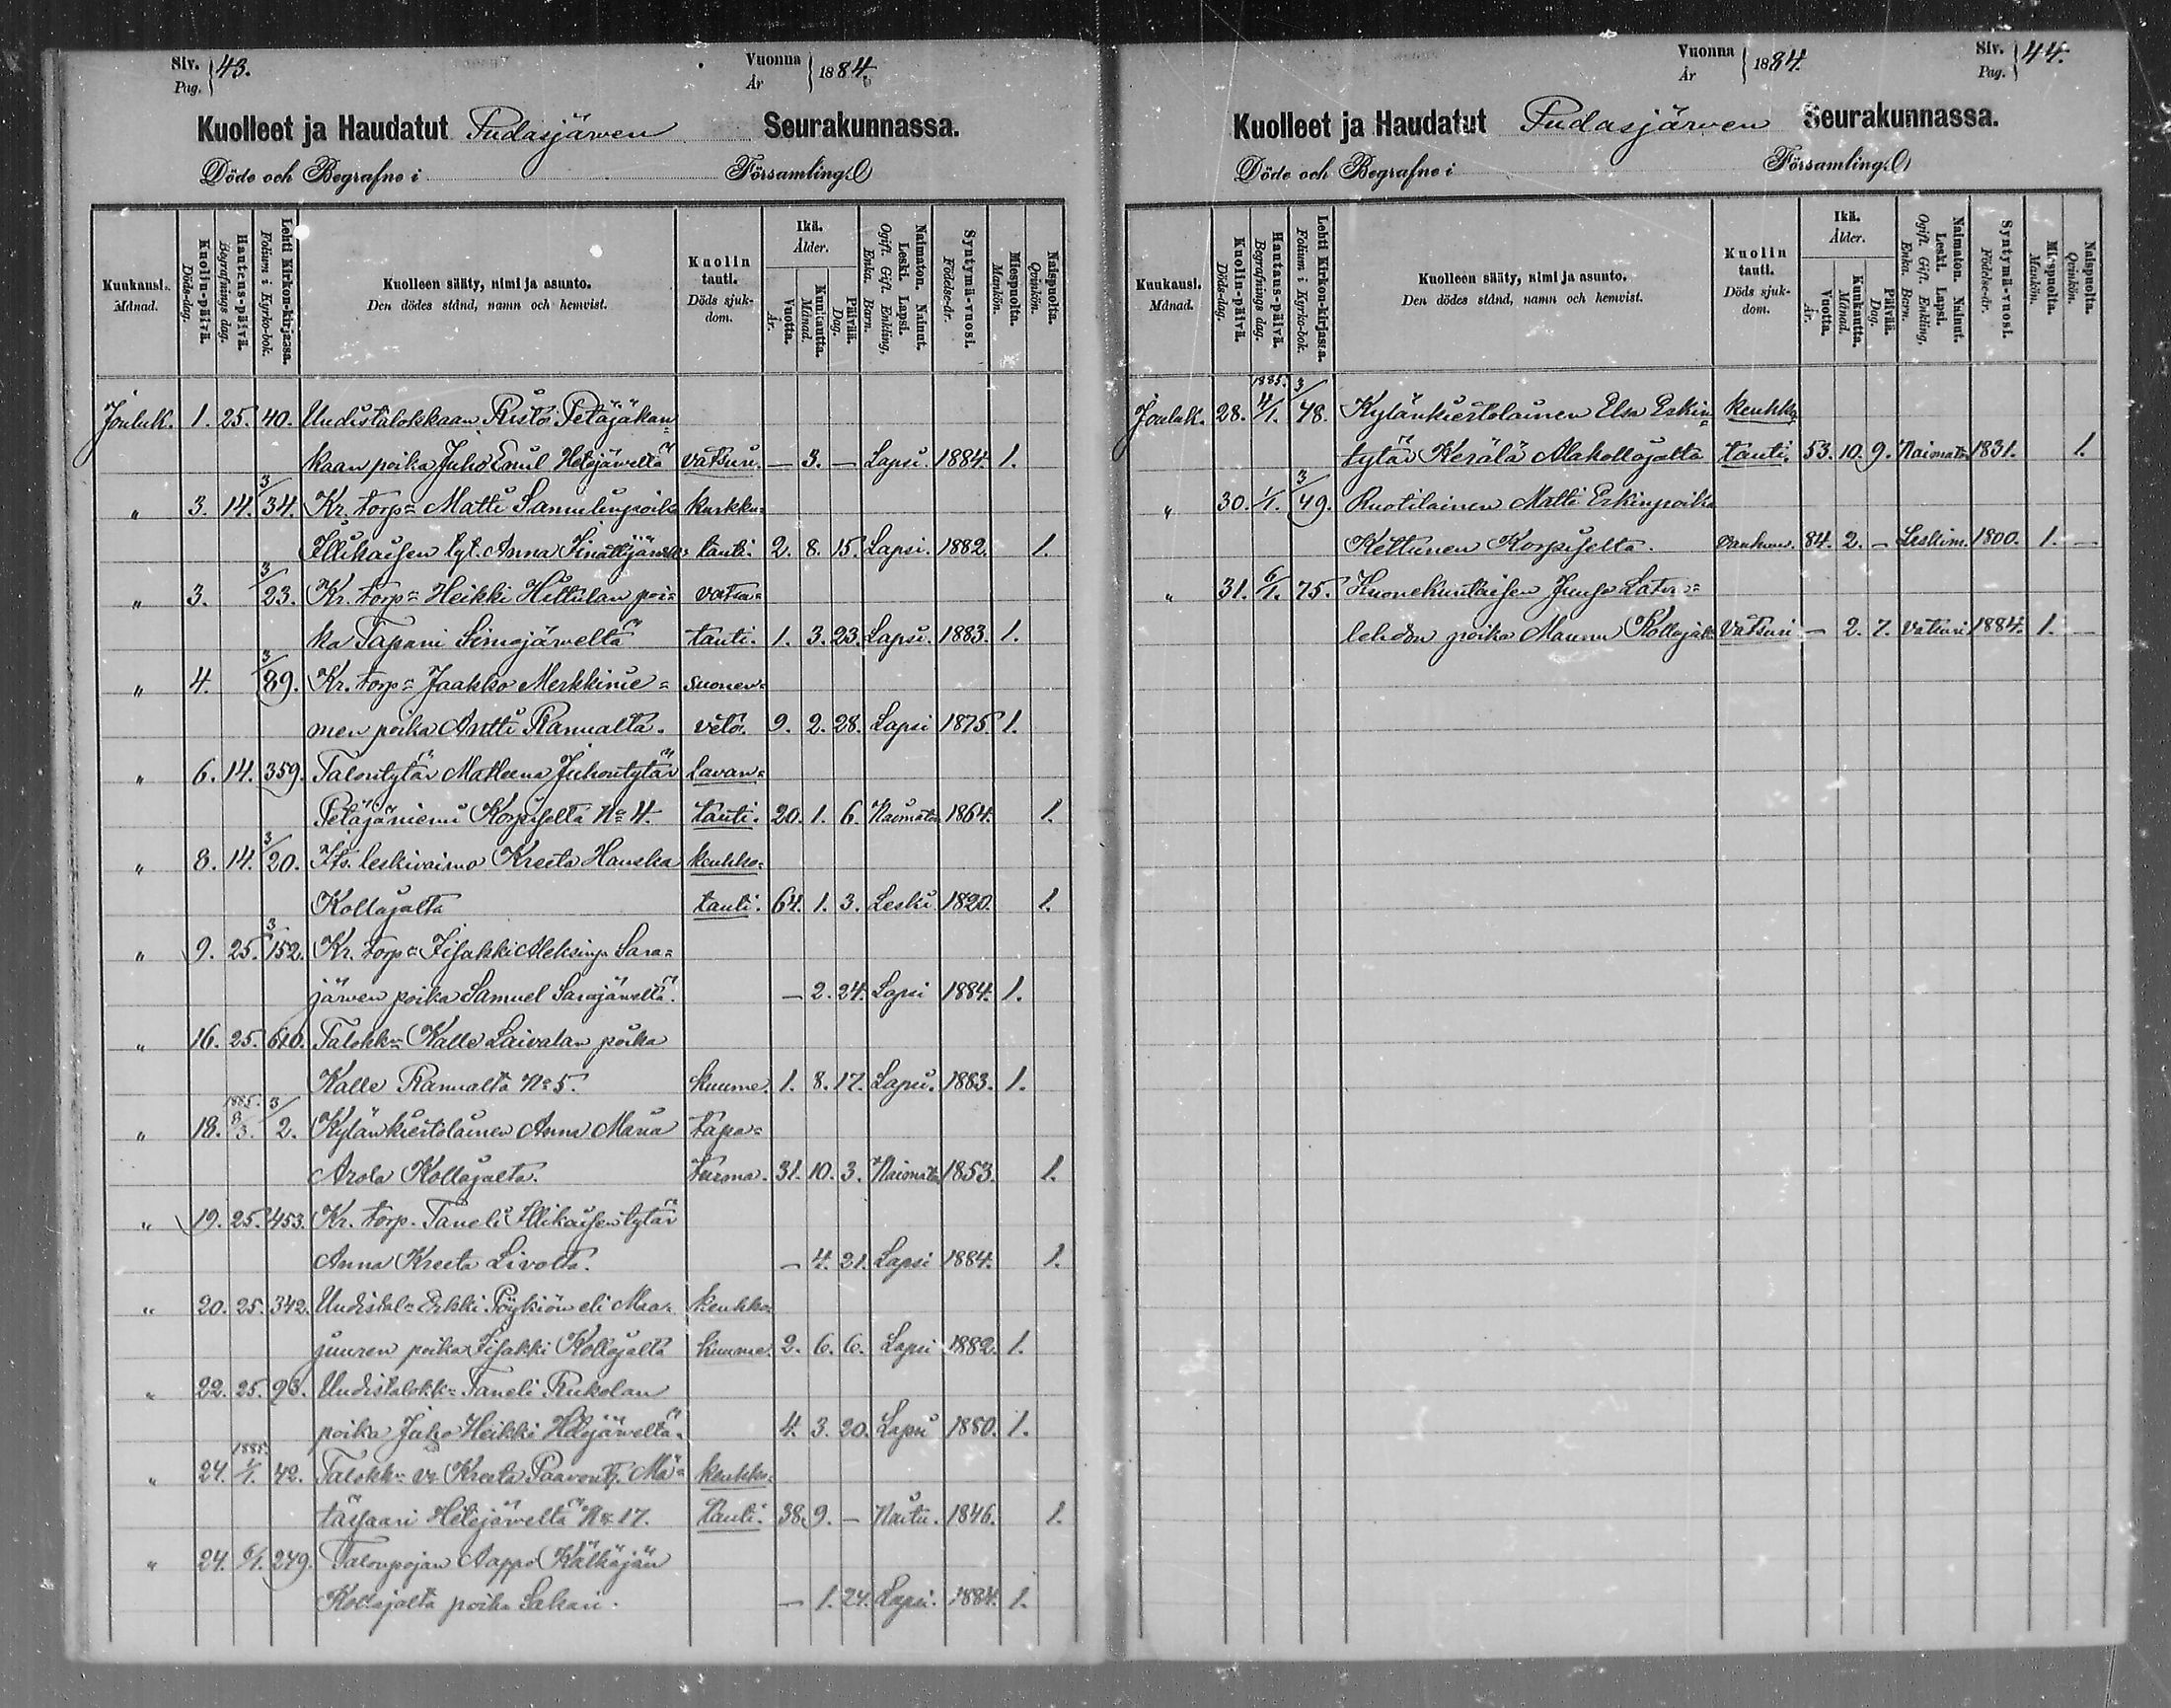 Siv. Pag. 43.
Vuonna År 1884.
Kuolleet ja Haudatut Pudasjärwen Seurakunnassa.
Döde och Begrafne i Församling.
Kuukausi. Månad.
Kuolin-päivä. Döds-dag.
Hautaus-päivä. Begrafnings dag.
Lehti Kirkon-kirjassa. Folium i Kyrko-bok.
Kuolleen sääty, nimi ja asunto. Den dödes stånd, namn och hemvist.
Kuolin tauti. Döds sjukdom.
Ikä. Ålder.
Vuotta. År.
Kuukautta. Månad.
Päivää. Dag.
Naimaton. Nainut. Leski. Lapsi. Ogift. Gift. Enkling, Enka. Barn.
Syntymä-vuosi. Födelse-år.
Miespuolta. Mankön.
Naispuolta. Qvinkön.
Jouluk. 1. 25. 40. Uudistalokkaan Risto Petäjäkan-
kaan poika Juho Emil Hetejärweltä vatsuri. — 3. — Lapsi. 1884. 1.
" 3. 14. 3/34. Kr. torp- Matti Samulinpoika kurkku-
Illikaisen tyt. Anna tauti. 2. 8. 15. Lapsi. 1882. 1.
" 3. 3/23. Kr. torp- Heikki Hiltulan poi- vatsa-
ka Tapani Simojärweltä tauti. 1. 3. 23. Lapsi. 1883. 1.
" 4. 3/89. Kr. torp- Jaakko Merkkinie- suonen-
men poika Antti Ranualta. veto. 9. 2. 28. Lapsi 1875. 1.
" 6. 14. 359. Talontytär Matleena Juhontytär lavan-
Petäjäniemi Korpiselta No 4. tauti. 20. 1. 6. Naimaton 1864. 1.
" 8. 14. 3/20. Its. leskivaimo Kreeta Hanska keuhko-
Kollajalta tauti. 64. 1. 3. Leski. 1820. 1.
" 9. 25. 3/152. Kr. torp- Iisakki Aleksinp. Sara-
järwen poika Samuel Sarajärweltä. — 2. 24. Lapsi 1884. 1.
" 16. 25. 610. Talokk- Kalle Laivalan poika
Kalle Ranualta No 5. kuume. 1. 8. 17. Lapsi. 1883. 1.
" 18. 1885. 8/3. 3/2. Kylänkiertolainen Anna Maria tapa-
Arola Kollajalta. turma. 31. 10. 3. Naimaton 1853. 1.
" 19. 25. 453. Kr. torp. Taneli Illikaisen tytär
Anna Kreeta Livolta. — 4. 21. Lapsi 1884. 1.
" 20. 25. 342. Uudistal- Erkki Pöykiön eli Maa- keuhko-
juuren poika Iisakki Kollajalta kuume. 2. 6. 6. Lapsi 1882. 1.
" 22. 25. 93. Uudistalokk- Taneli Rukolan
poika Juho Heikki Hetejärweltä. 4. 3. 20. Lapsi 1880. 1.
" 24. 1885. 1/1. 42. Talokk- vo Kreeta Paavont. Mä- keuhko-
täsaari Hetejärweltä No 17. tauti. 38. 9. — Naitu. 1846. 1.
" 24. 6/1. 249. Talonpojan Aappo Kälkäjän
Kollajalta poika Sakari. — 1. 24. Lapsi. 1884. 1.
Vuonna År 1884.
Siv. Pag. 44.
Kuolleet ja Haudatut Pudasjärwen Seurakunnassa.
Döde och Begrafne i Församling.
Kuukausi. Månad.
Kuolin-päivä. Döds-dag.
Hautaus-päivä. Begrafnings dag.
Lehti Kirkon-kirjassa. Folium i Kyrko-bok.
Kuolleen sääty, nimi ja asunto. Den dödes stånd, namn och hemvist.
Kuolin tauti. Döds sjukdom.
Ikä. Ålder.
Vuotta. År.
Kuukautta. Månad.
Päivää. Dag.
Naimaton. Nainut. Leski. Lapsi. Ogift. Gift. Enkling, Enka. Barn.
Syntymä-vuosi. Födelse-år.
Miespuolta. Mankön.
Naispuolta. Qvinkön.
Jouluk. 28. 1885. 4/1. 3/48. Kylänkiertolainen Elsa Erkin- keuhko-
tytär Kerälä Alakollajalta tauti. 53. 10. 9. Naimaton 1831. 1.
" 30. 1/1. 3/49. Ruotilainen Matti Erkinpoika
Kettunen Korpiselta. vanhuus. 84. 2. — Leskim. 1800. 1. —
" 31. 6/1. 75. Huonekuntaisen Juuso Latva-
lehdon poika Mauno Kollajalta Vatsuri — 2. 7. Vatsuri 1884. 1. —